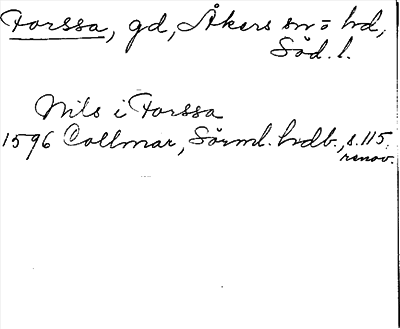 Forssa, gd, Åkers sn o hd,
Söd. l.
Nils i Forssa
1596 Collmar, Sörml. hrdb., s. 115.
renov.